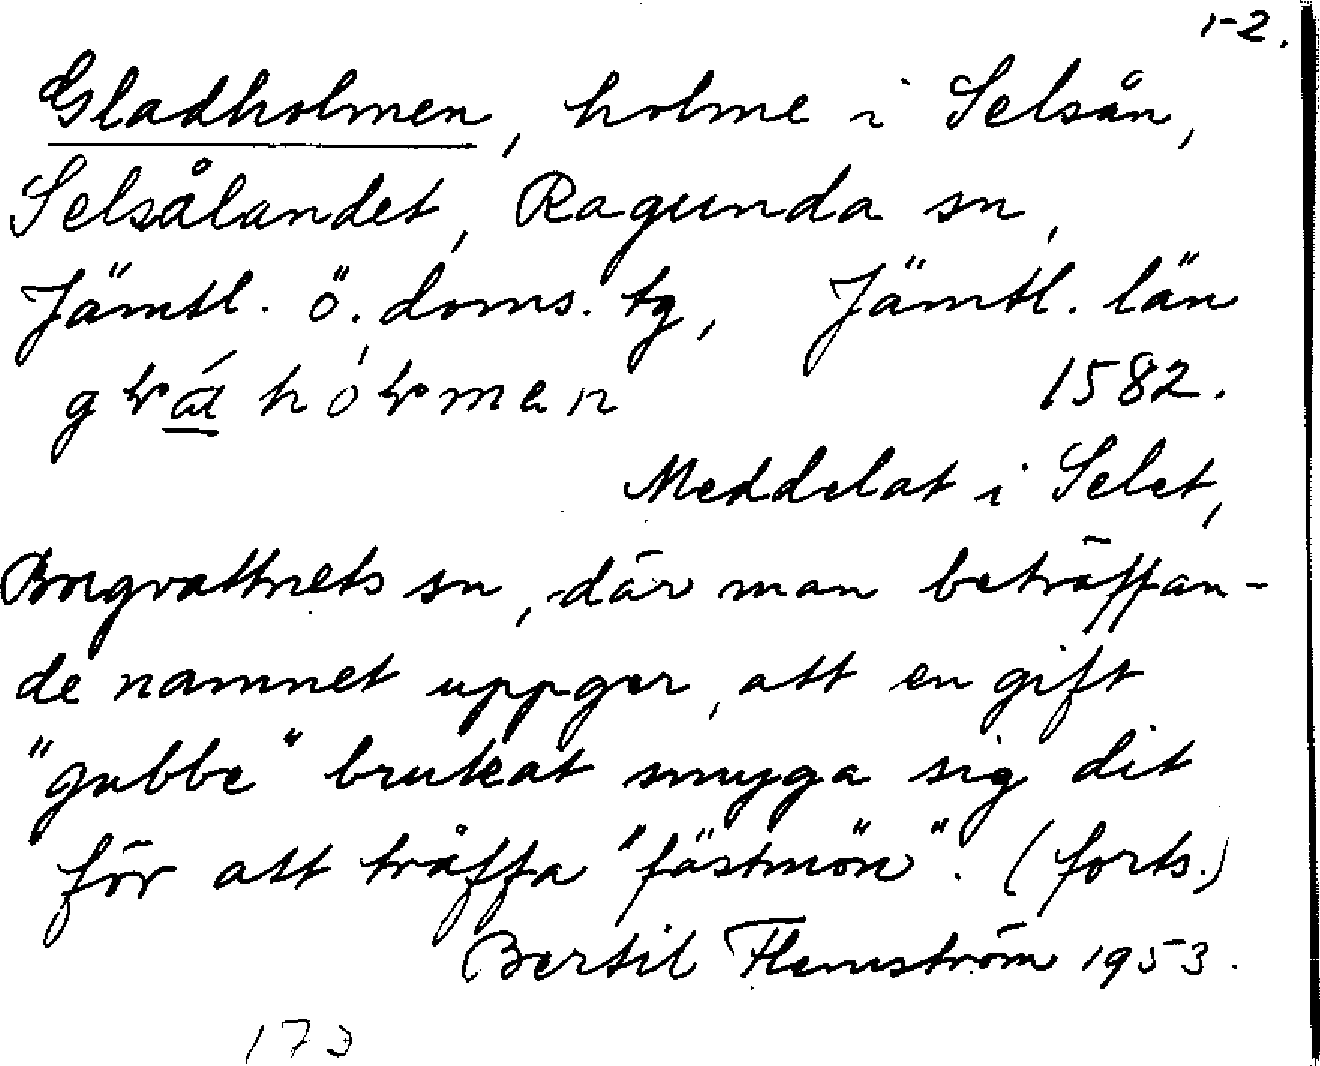 1-2.
Gladholmen, holme i Selsån,
Selsålandet, Ragunda sn,
Jämtl. ö. doms. tg, Jämtl. län
1582.
Meddelat i Selet,
Borgvattnets sn, där man beträffan-
de namnet uppger, att en gift
"gubbe" brukat smyga sig dit
för att träffa "fästmön". (forts.)
Bertil Flemström 1953.
173